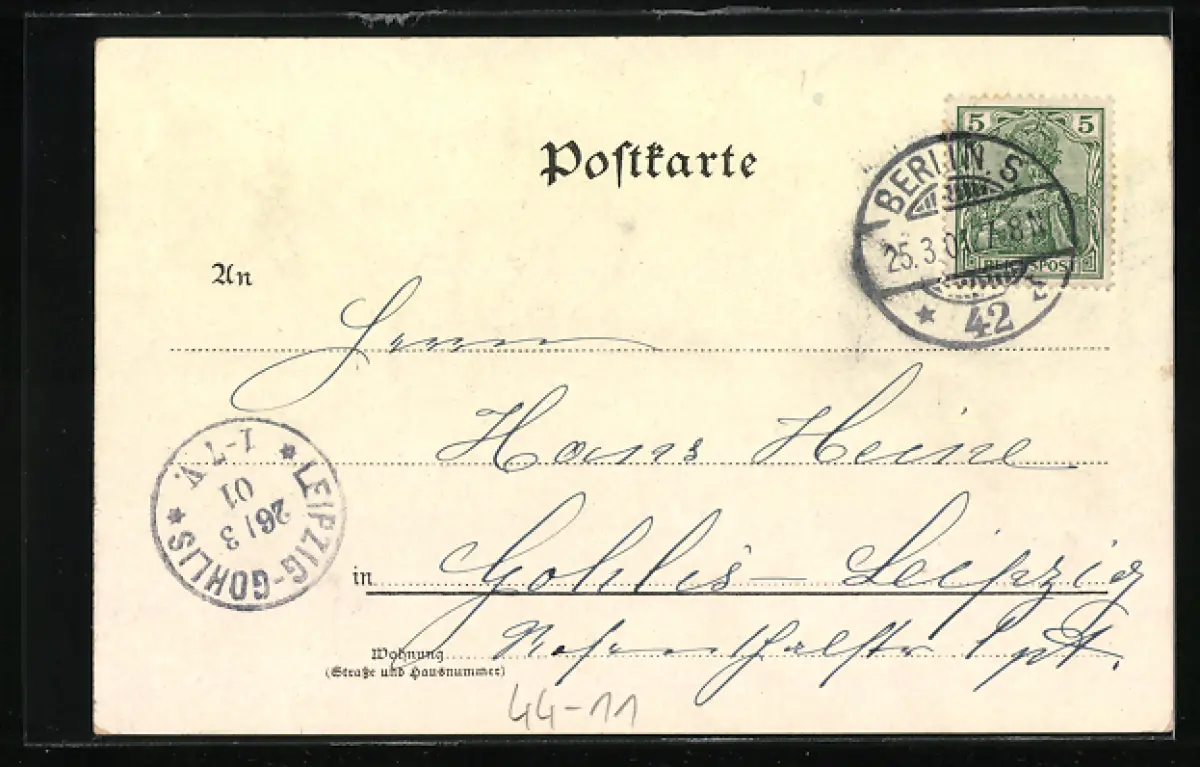 Postkarte
5 5
BERLIN. S
25.3.01. 7-8 N
* 42
REICHSPOST
An
Herrn
Hans Heine
LEIPZIG-GOHLIS
26/3
01
1-7 V.
in Gohlis-Leipzig
Wohnung
(Straße und Hausnummer)
44-11